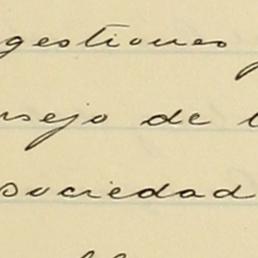 gestiones
nsejo de
sociedad